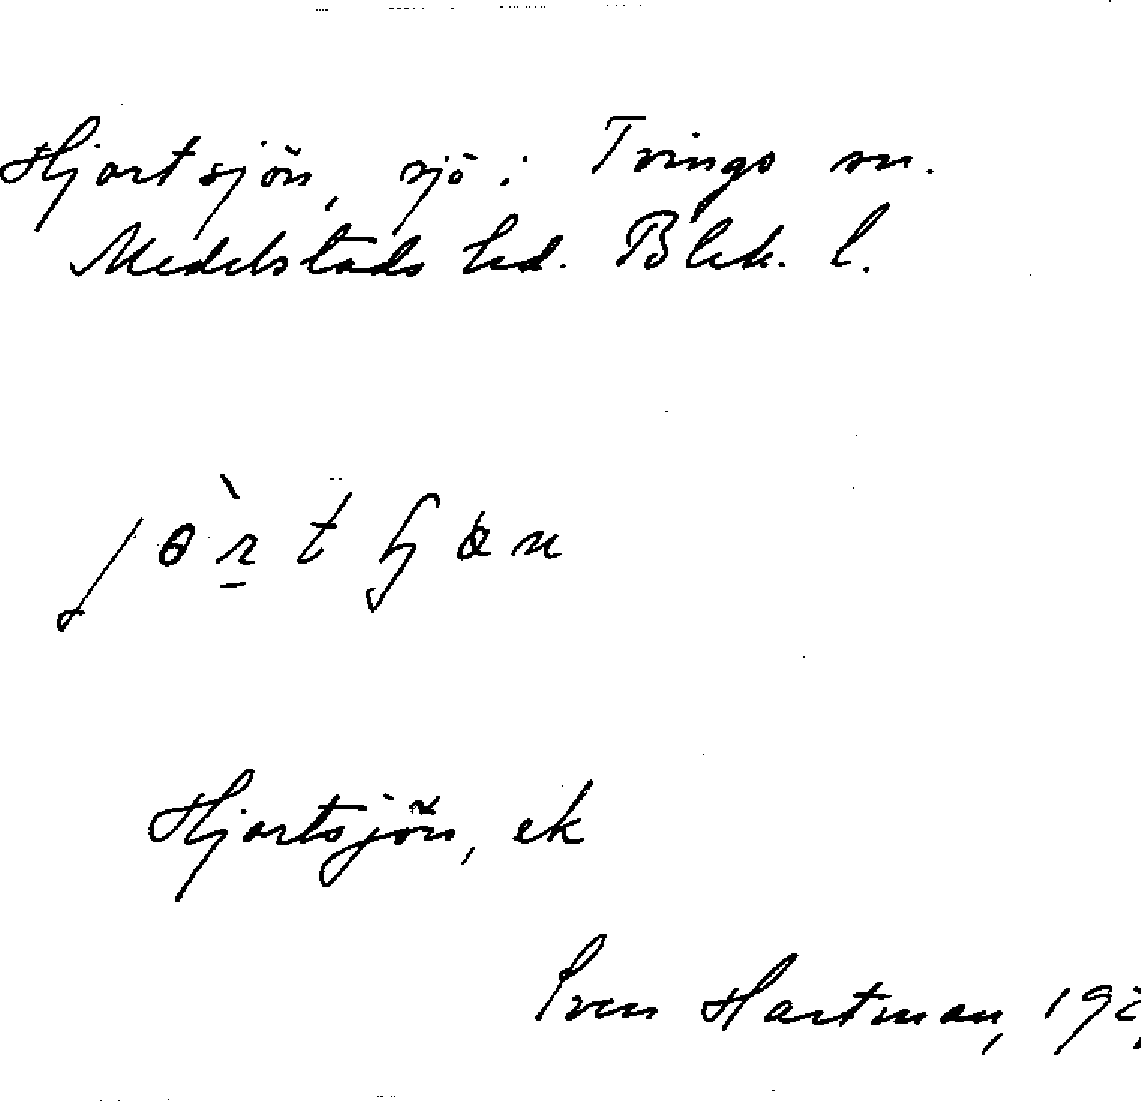 Hjortsjön, sjö i Tvings sn.
Medelstads hd. Blek. l.
Hjortsjön, ek
Sven Hartman, 192